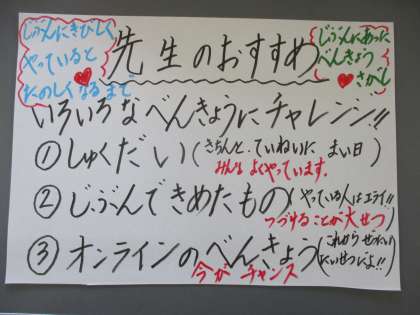 じぶんにきびしく
やっていると
たのしくなるまで
先生のおすすめ
じぶんにあった
べんきょう
さがし
いろいろなべんきょうにチャレンジ!!
①しゅくだい(きちんと・ていねいに まい日)
みんな よくやっています。
②じぶんできめたもの(やっている人はエライ!!)
つづけることが大せつ
③オンラインのべんきょう(これから ぜったい
たいせつだよ!!)
今が チャンス